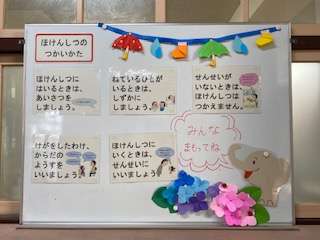 ほけんしつの
つかいかた
ほけんしつに
はいるときは、
あいさつを
しましょう。
ねているひとが
いるときは、
しずかに
しましょう。
せんせいが
いないときは、
ほけんしつは
つかえません。
けがをしたわけ、
からだの
ようすを
いいましょう。
ほけんしつに
いくときは、
せんせいに
いいましょう。
みんな
まもってね